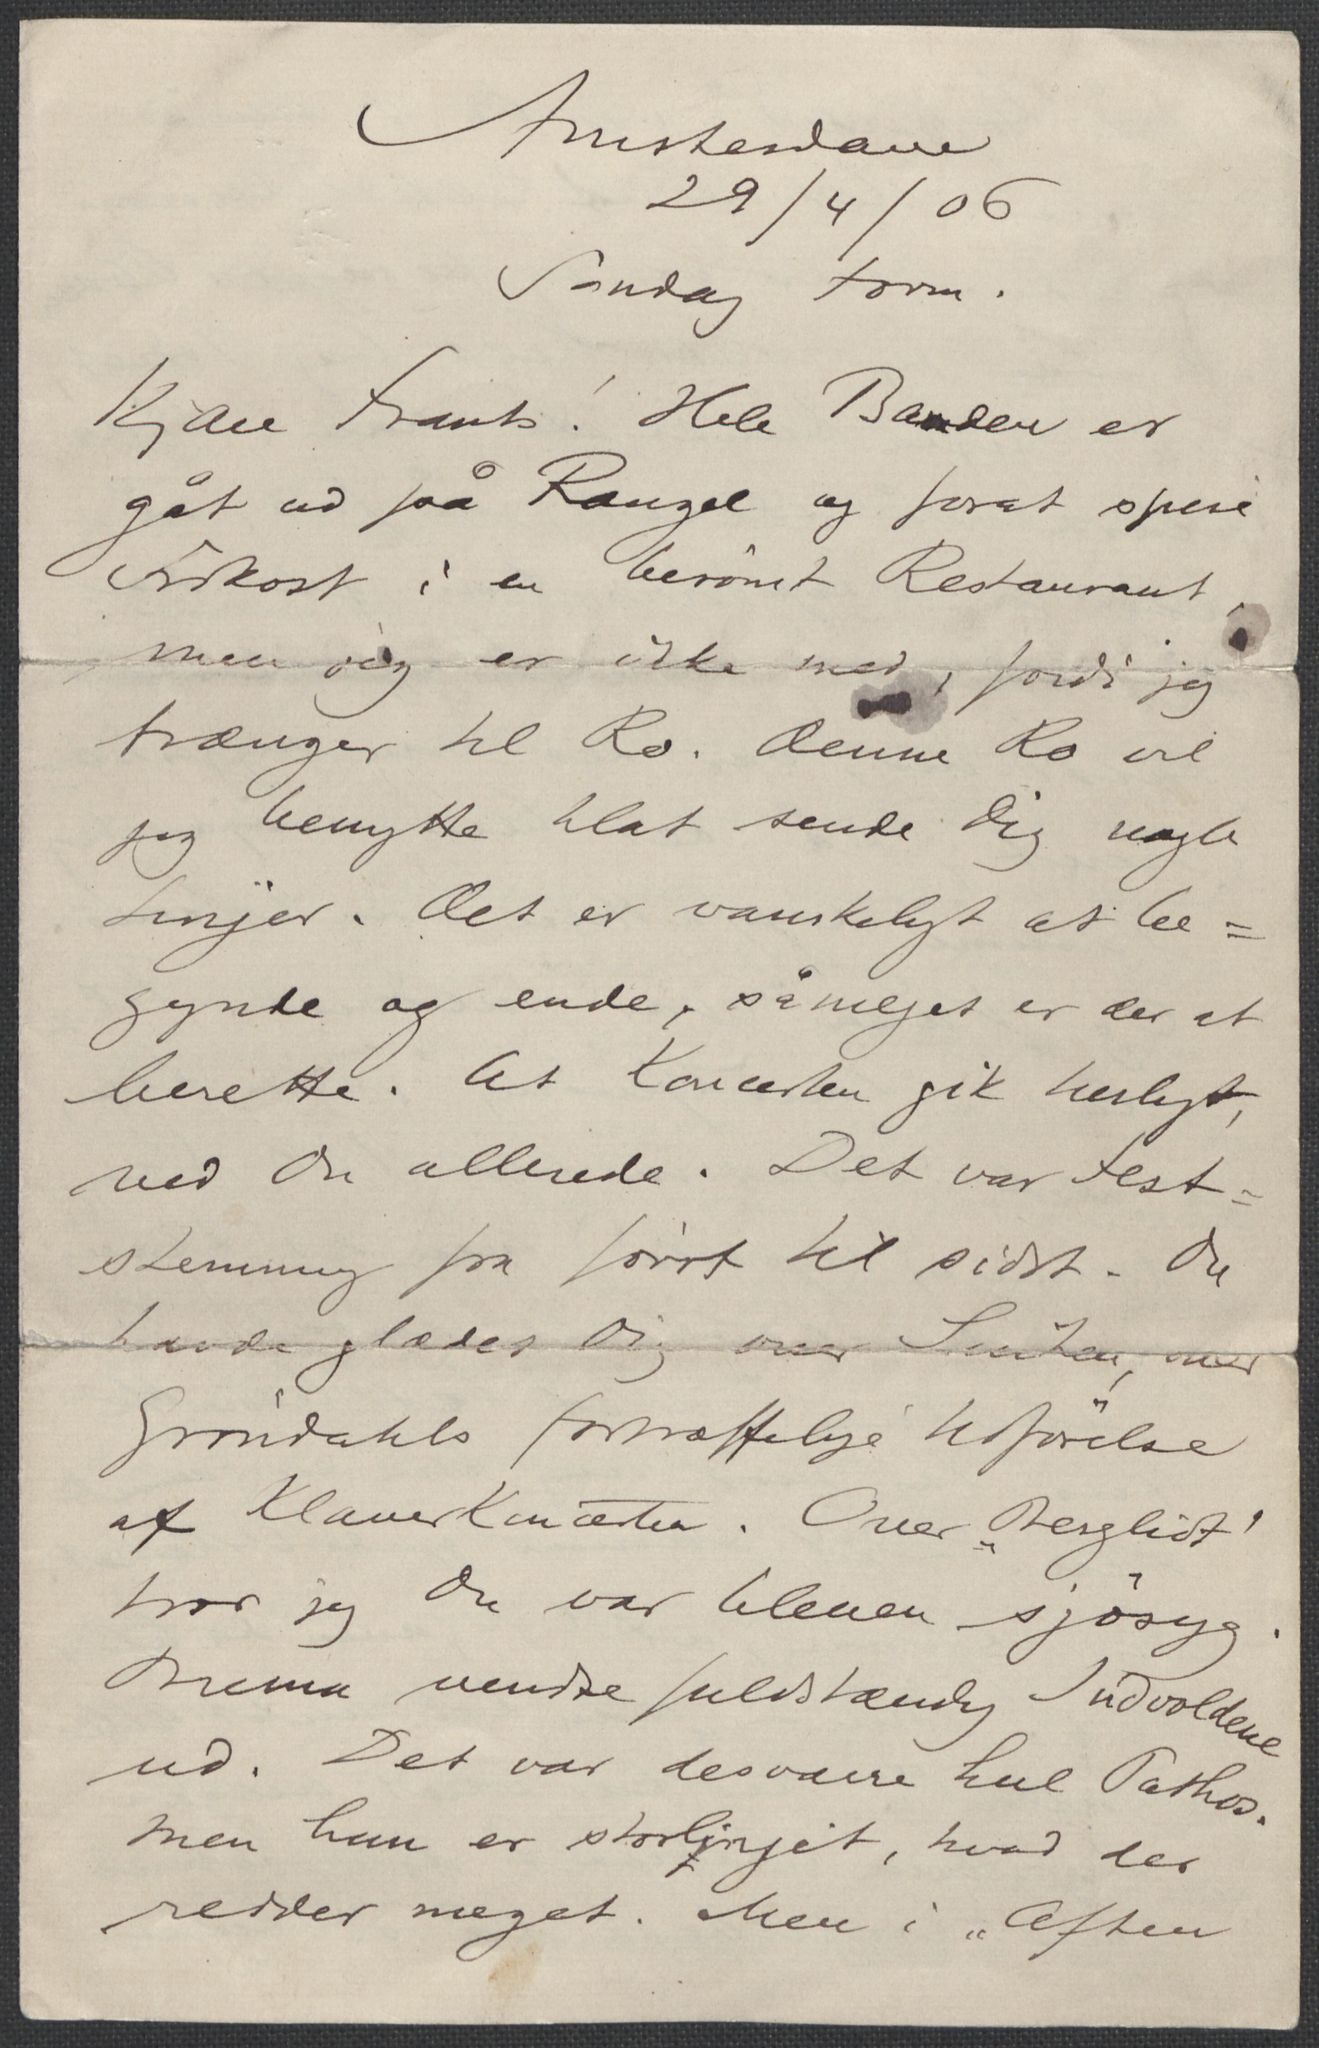 Amsterdam
29/4/06
Søndag Form.
Kjære Frants! Hele Banden er
gåt ud på Rangel og forat spise
Frokost i en berömt Restaurant,
men jeg er ikke med, fordi jeg
trænger til Ro. Denne Ro vil
jeg benytte tilat sende Dig nogle
Linjer. Det er vanskeligt at be=
gynde og ende, såmeget er der at
berette. At Koncerten gik herligt,
ved Du allerede. Det var Fest=
stemning fra först til sidst. Du
havde glædet Dig over Suiten, over
Gröndahls fortræffelige Udförelse
af Klaverkoncerten. Over „Bergliot"
tror jeg Du var bleven sjösyg.
Brema vendte fuldstændig Indvoldene
ud. Det var desværre hul Pathos.
Men hun er storlinjet, hvad der
redder meget. Men i „Aften